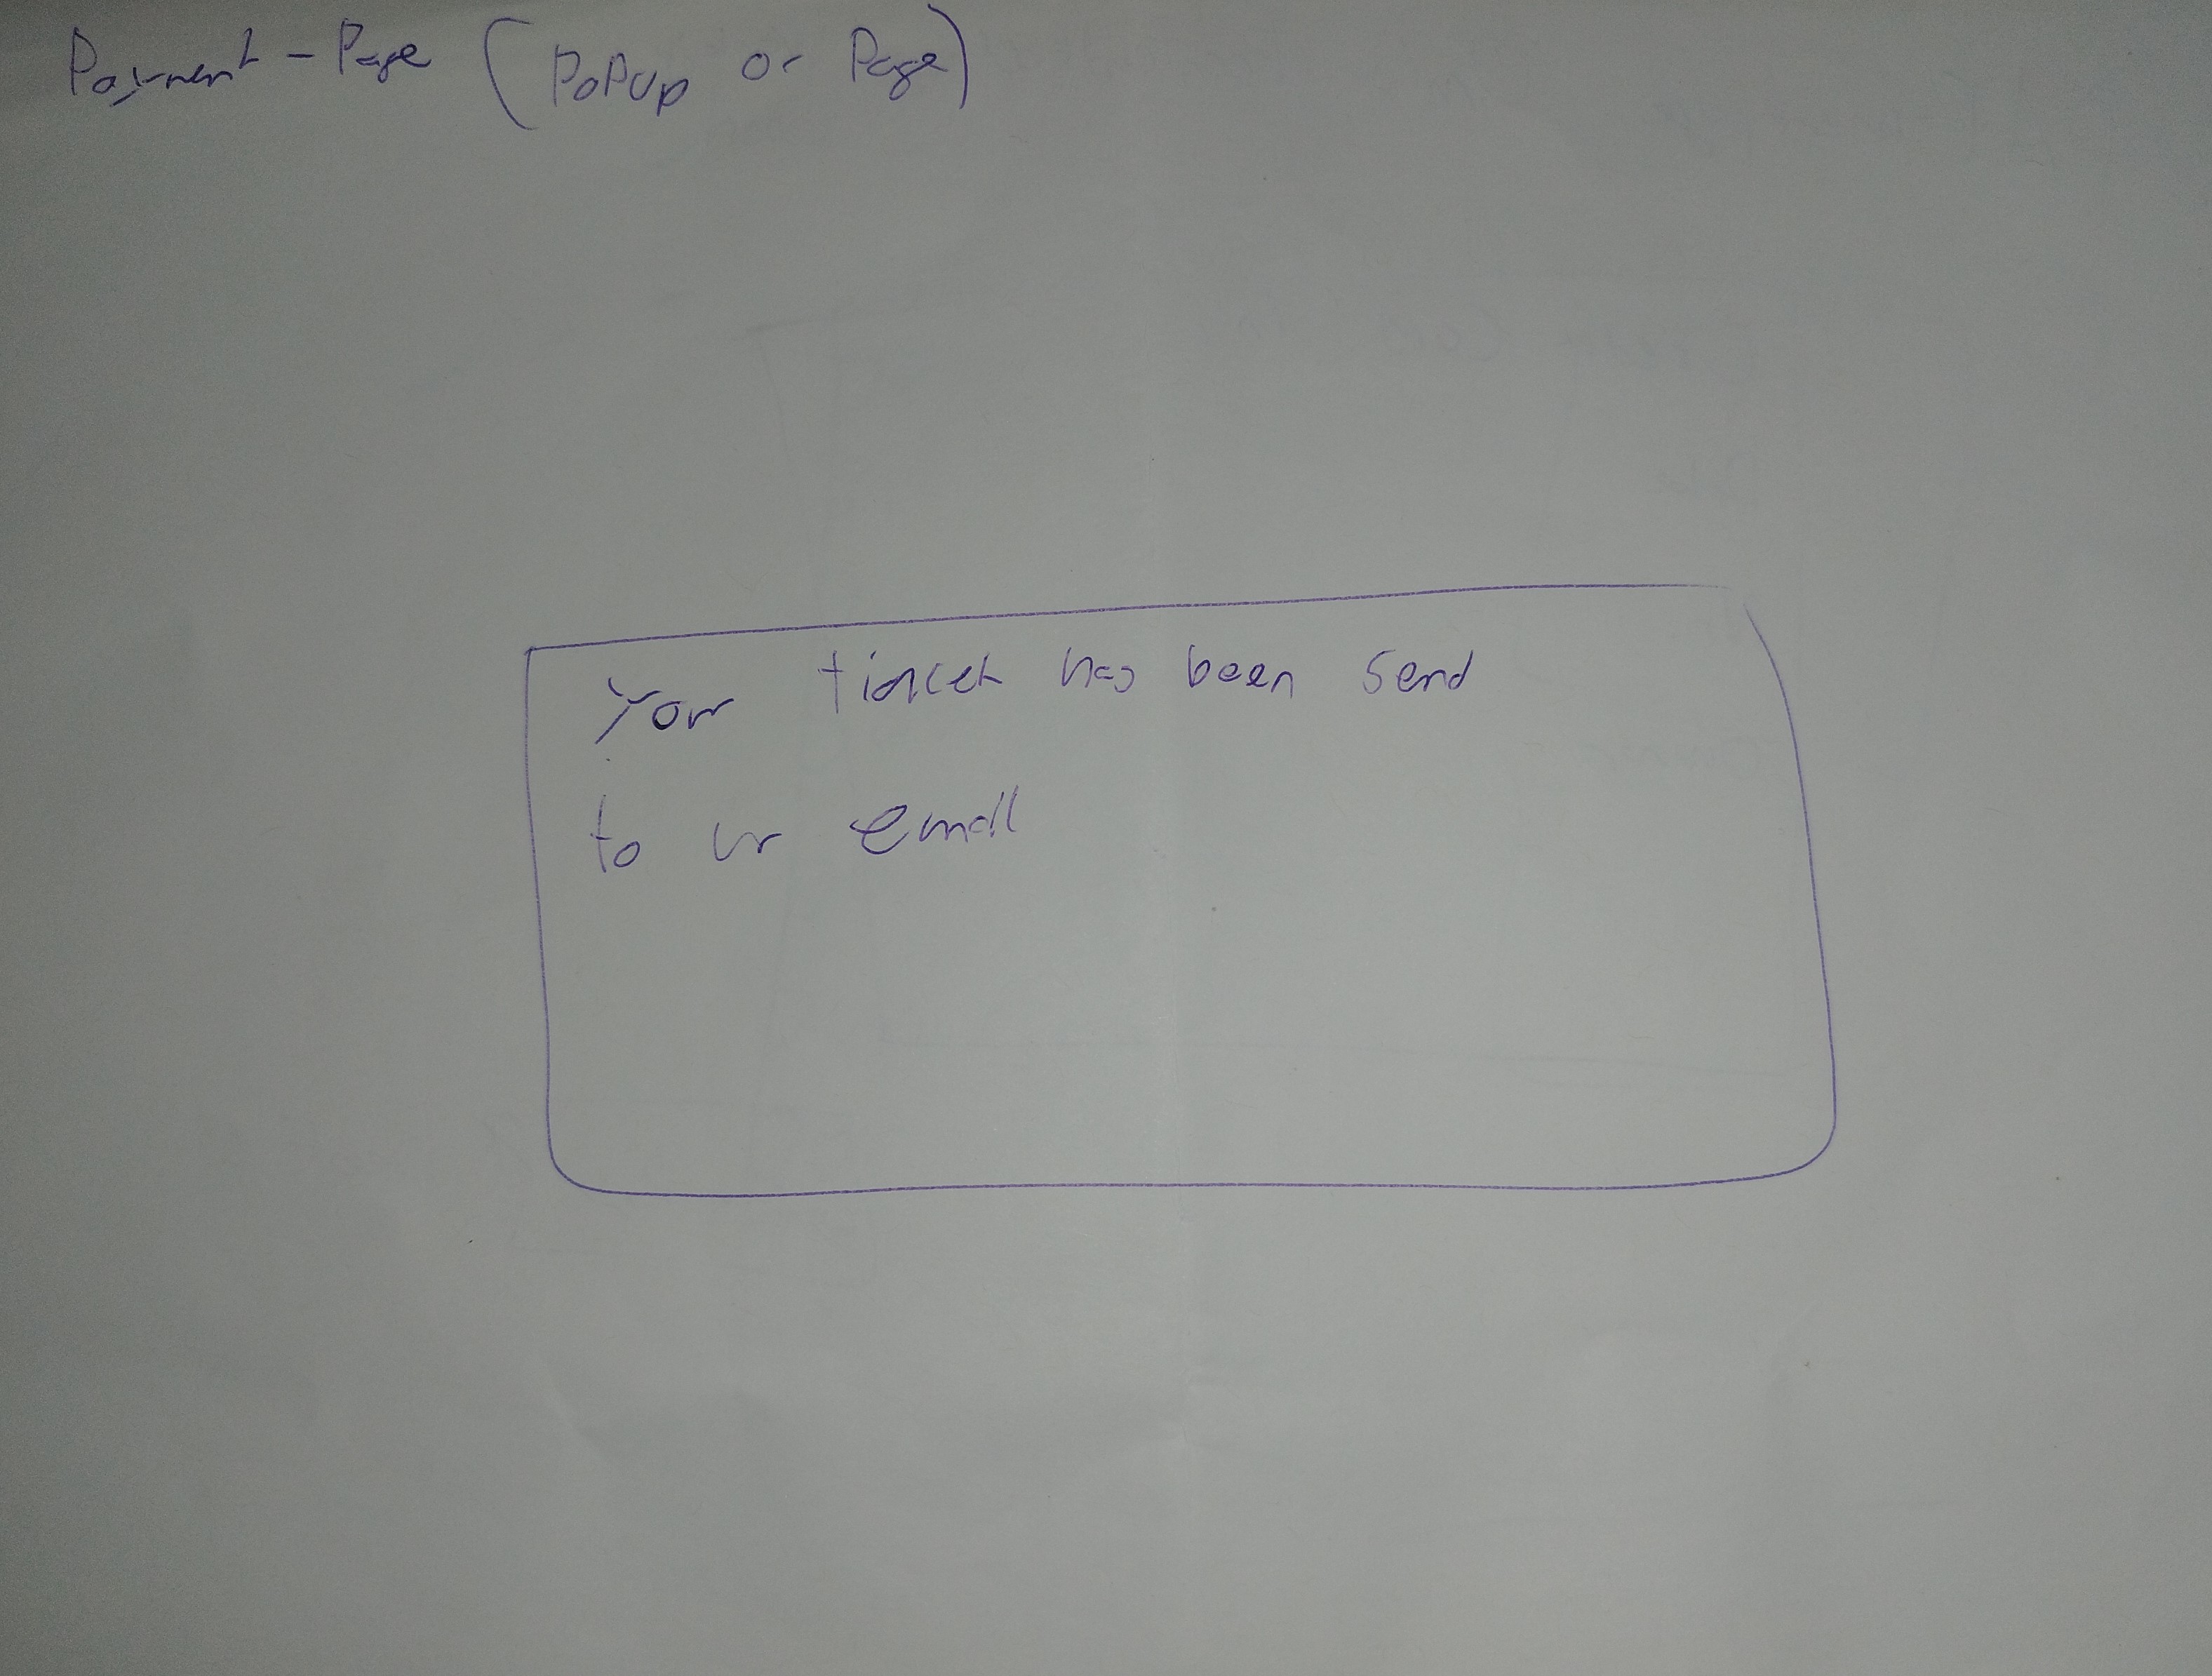 Payment - Page (PoPup or Page)
Your ticket has been send
to ur email